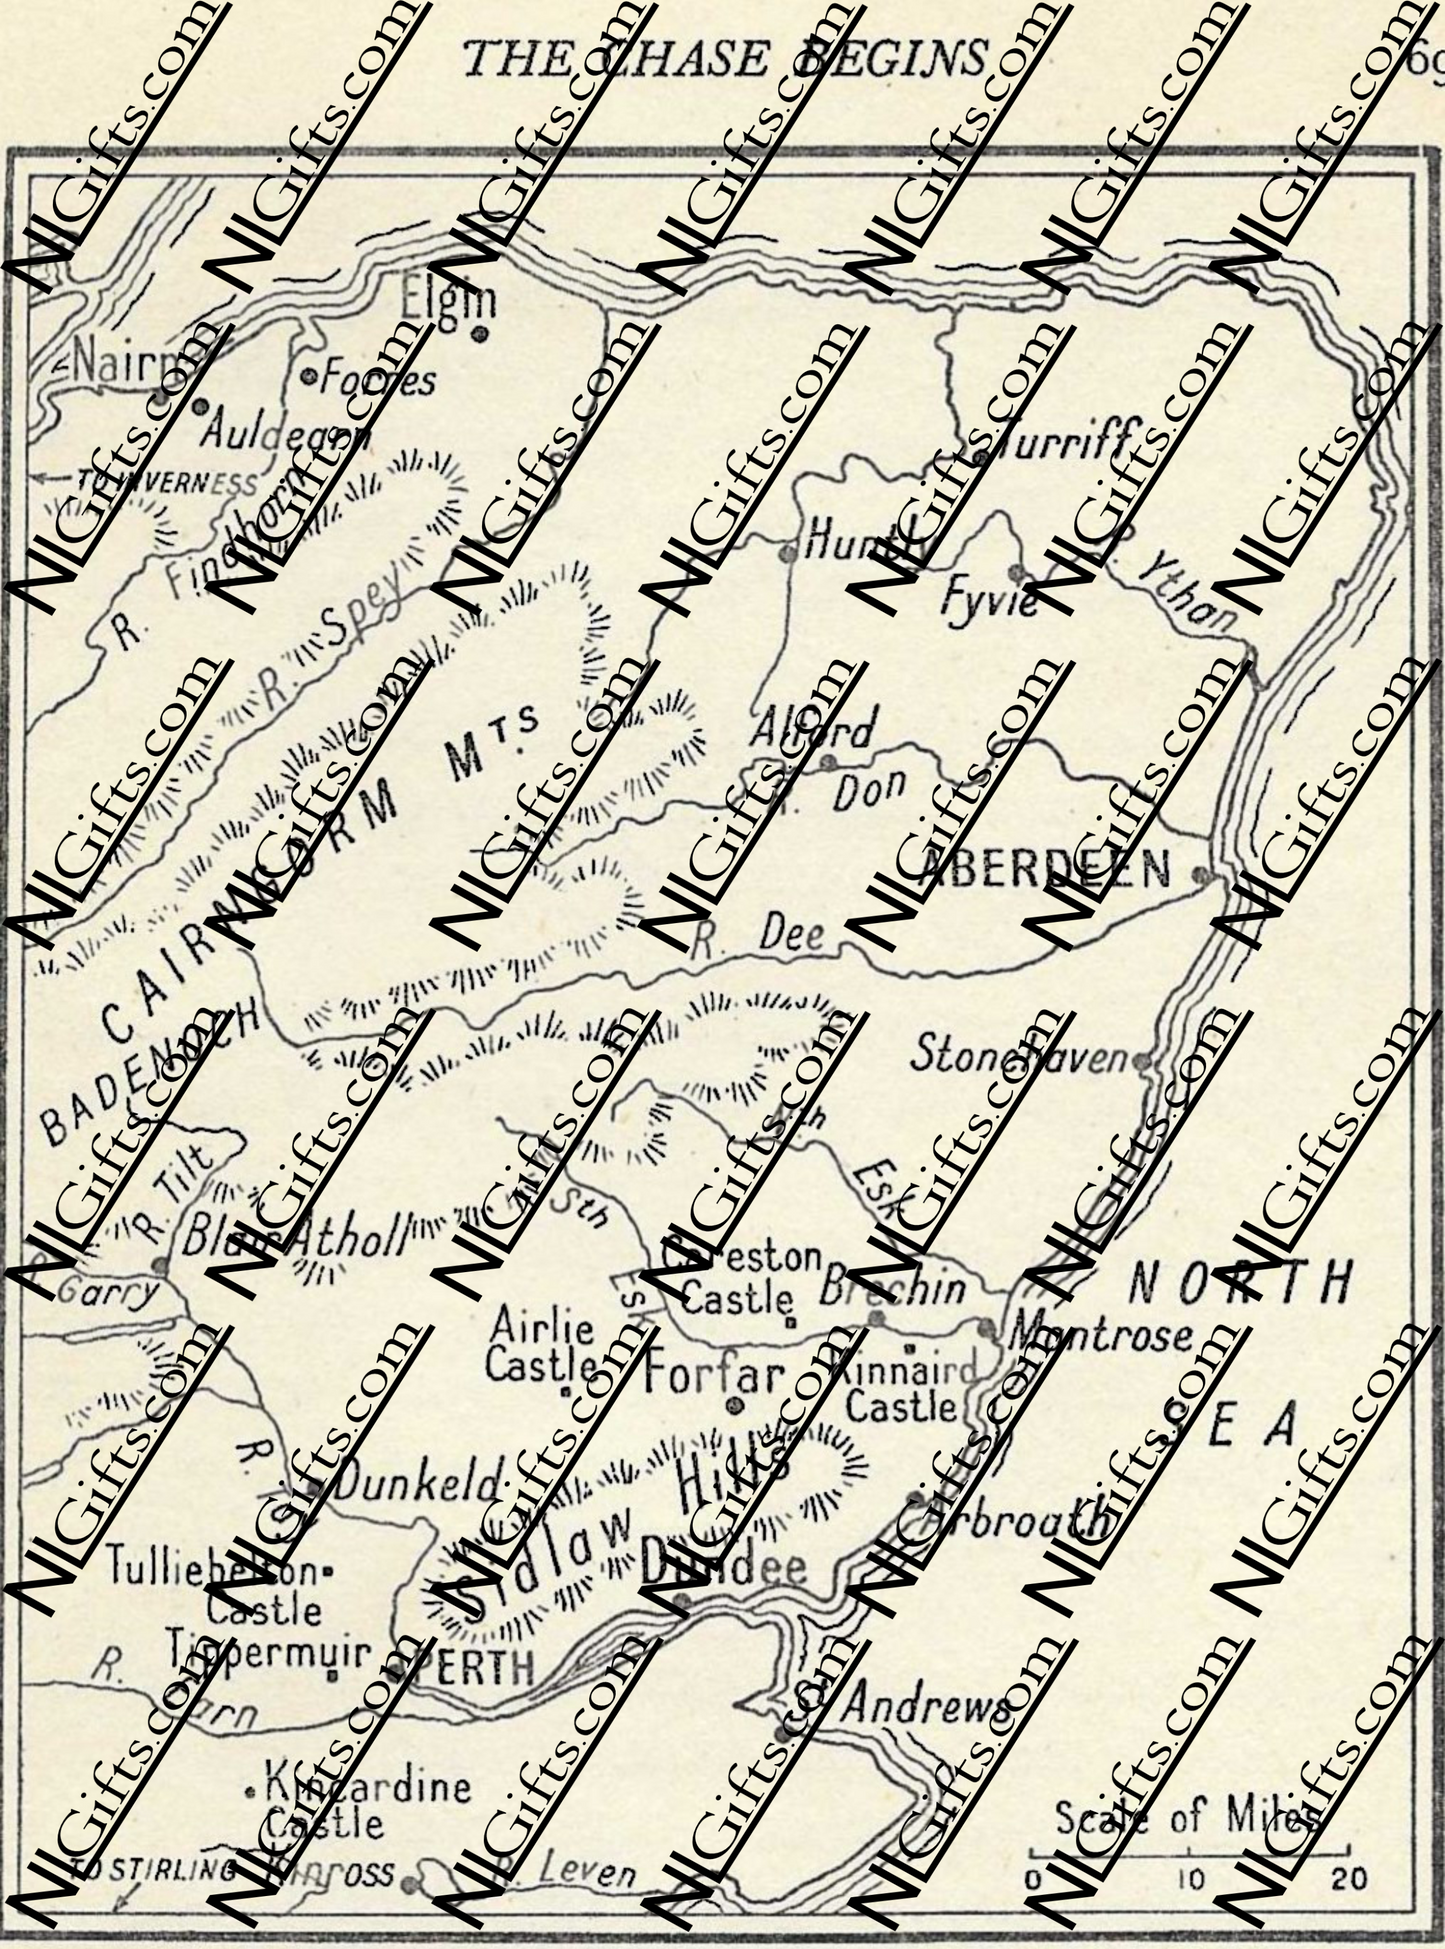 THE CHASE BEGINS
69
Elgin
Nairn
Forres
Auldearn
TO INVERNESS
R. Findhorn
Turriff
Huntly
Fyvie
R. Ythan
R. Spey
CAIRNGORM MTS.
Alford
R. Don
ABERDEEN
R. Dee
BADENOCH
Stonehaven
Nth
Esk
R. Tilt
Sth
Esk
Blair Atholl
R.
Garry
Careston
Castle
Brechin
NORTH
SEA
Airlie
Castle
Forfar
Kinnaird
Castle
Montrose
R.
Dunkeld
Sidlaw Hills
Arbroath
Dundee
Tulliebelton
Castle
Tippermuir
PERTH
R.
Earn
St Andrews
Kincardine
Castle
Scale of Miles
0 10 20
TO STIRLING
Kinross
R. Leven
NIGifts.com